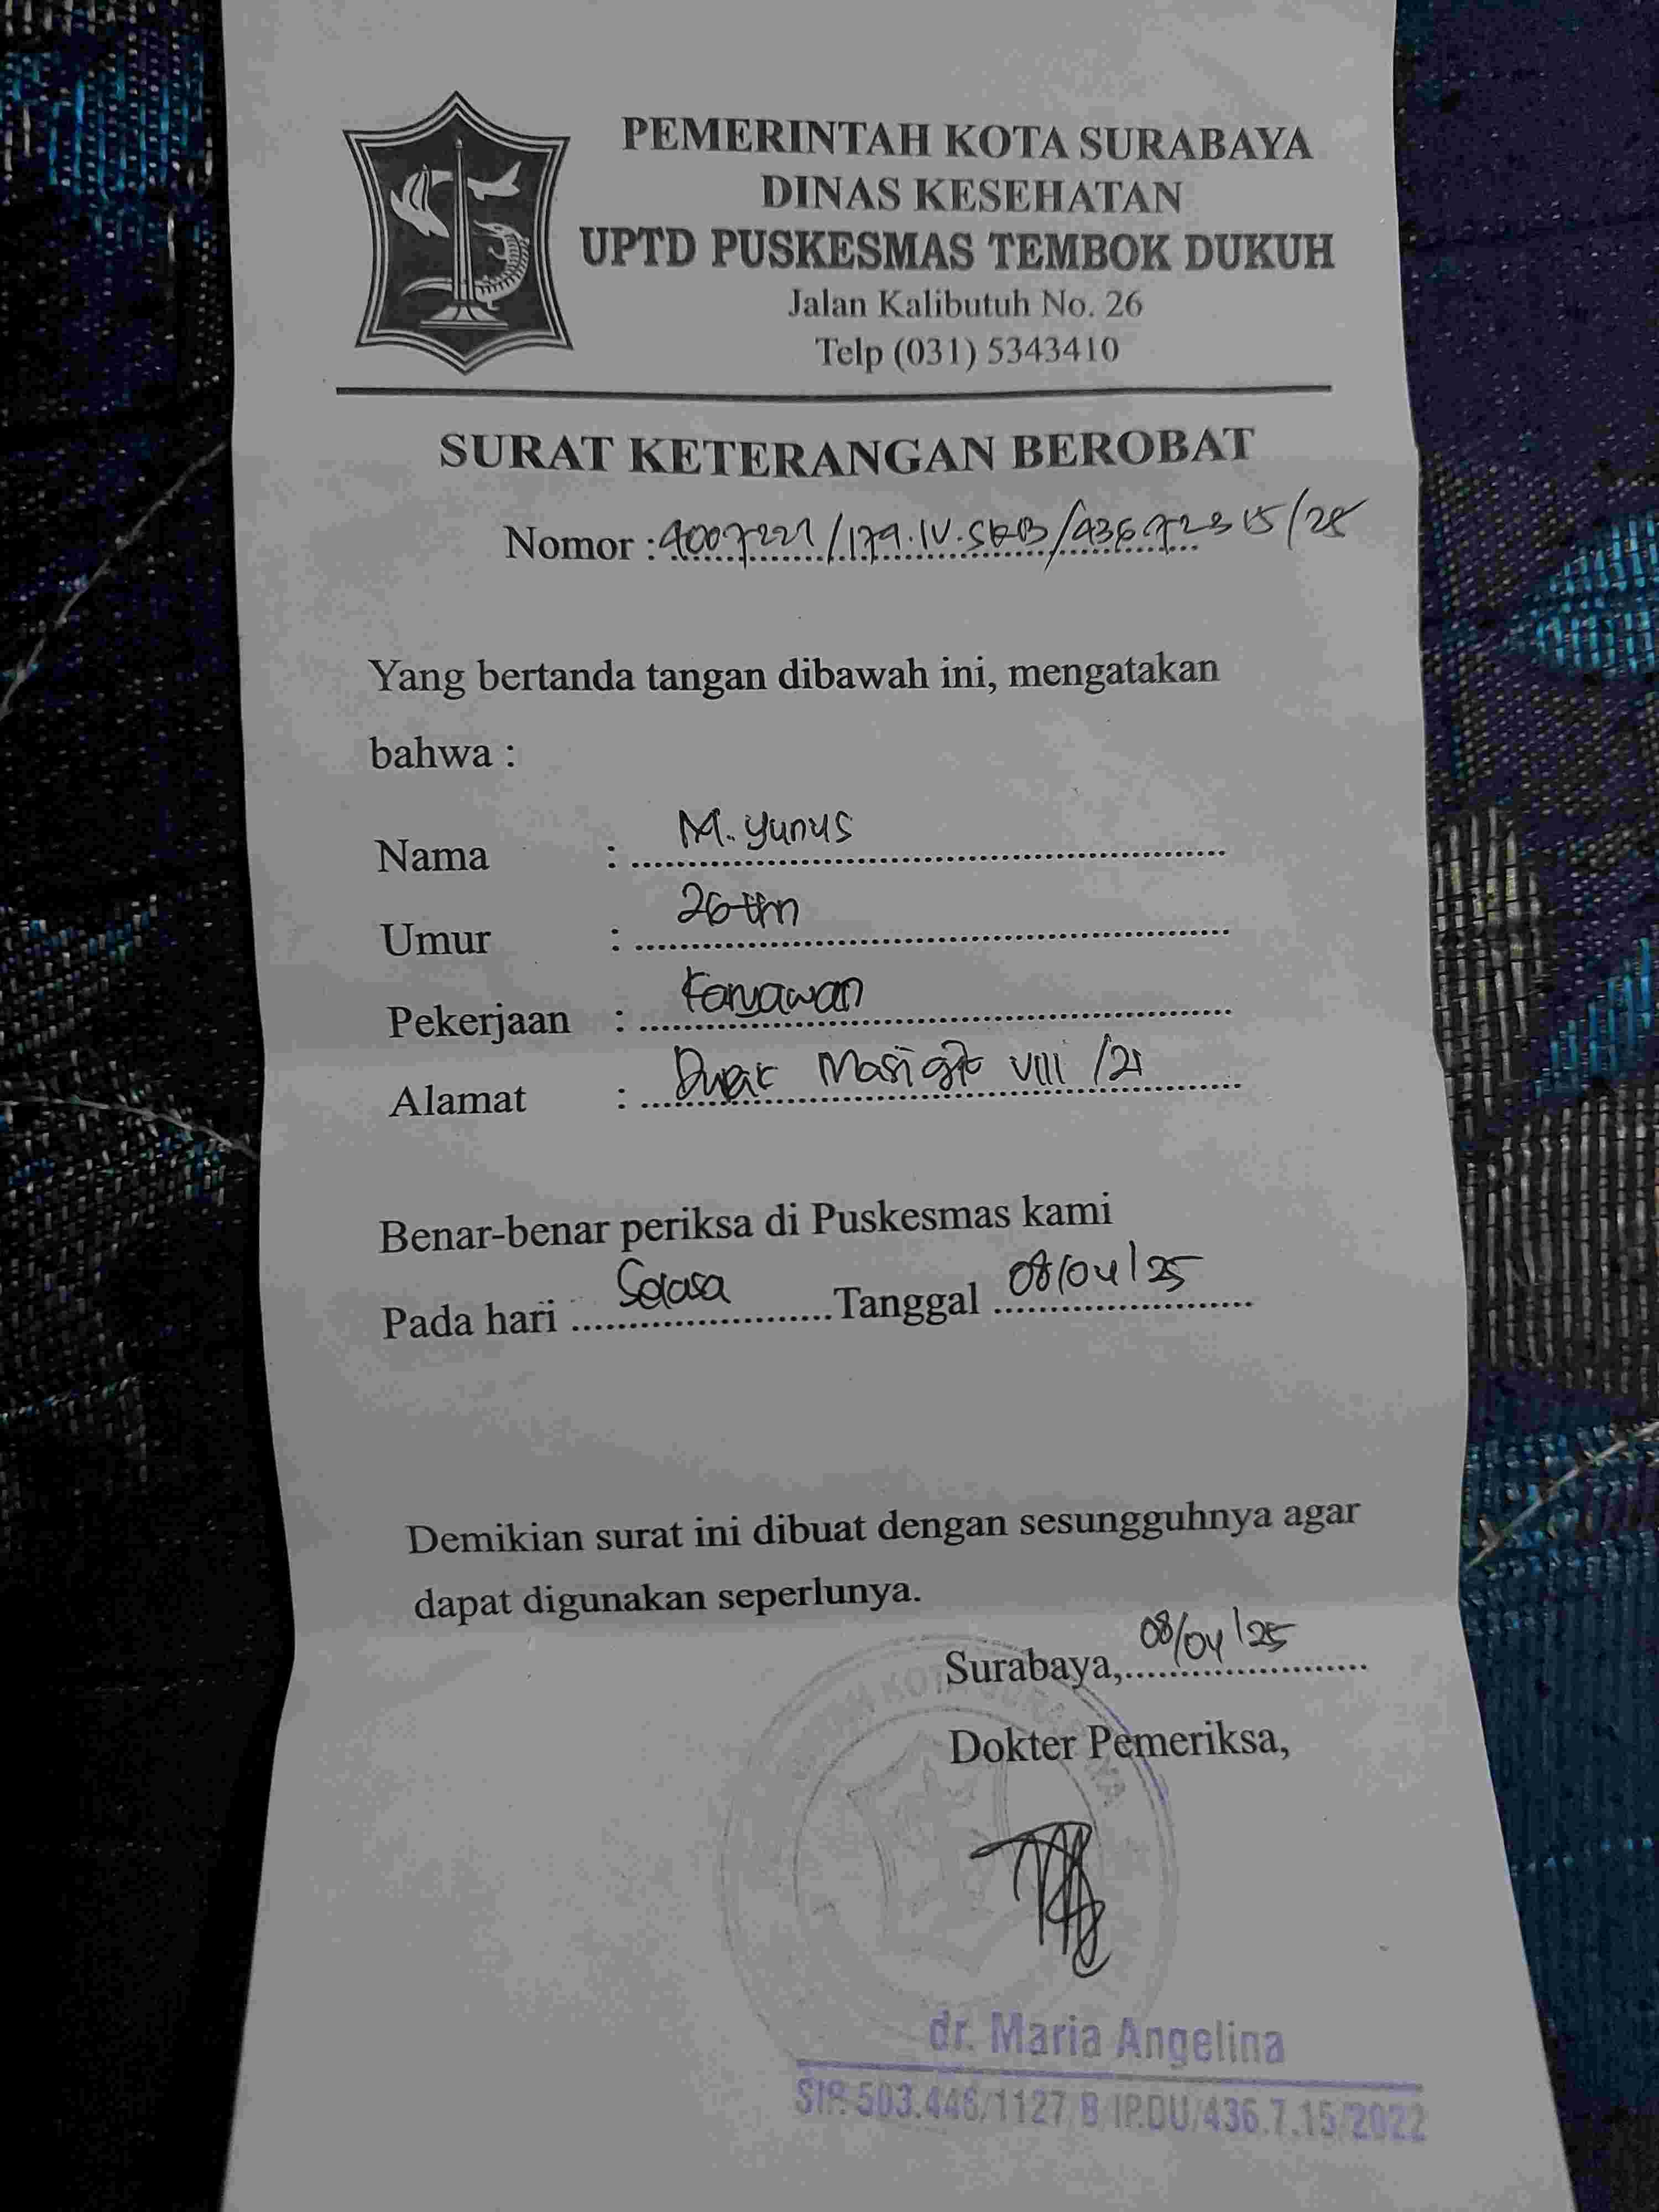 PEMERINTAH KOTA SURABAYA
DINAS KESEHATAN
UPTD PUSKESMAS TEMBOK DUKUH
Jalan Kalibutuh No. 26
Telp (031) 5343410
SURAT KETERANGAN BEROBAT
Nomor :
Yang bertanda tangan dibawah ini, mengatakan
bahwa :
Nama : M. Yunus
Umur : 26 thn
Pekerjaan : Karyawan
Alamat : Dupak Masigit VIII /21
Benar-benar periksa di Puskesmas kami
Pada hari Selasa Tanggal 08/04/25
Demikian surat ini dibuat dengan sesungguhnya agar
dapat digunakan seperlunya.
Surabaya, 08/04/25
Dokter Pemeriksa,
dr. Maria Angelina
SIP. 503.446/1127 B IP.DU/436.7.15/2022